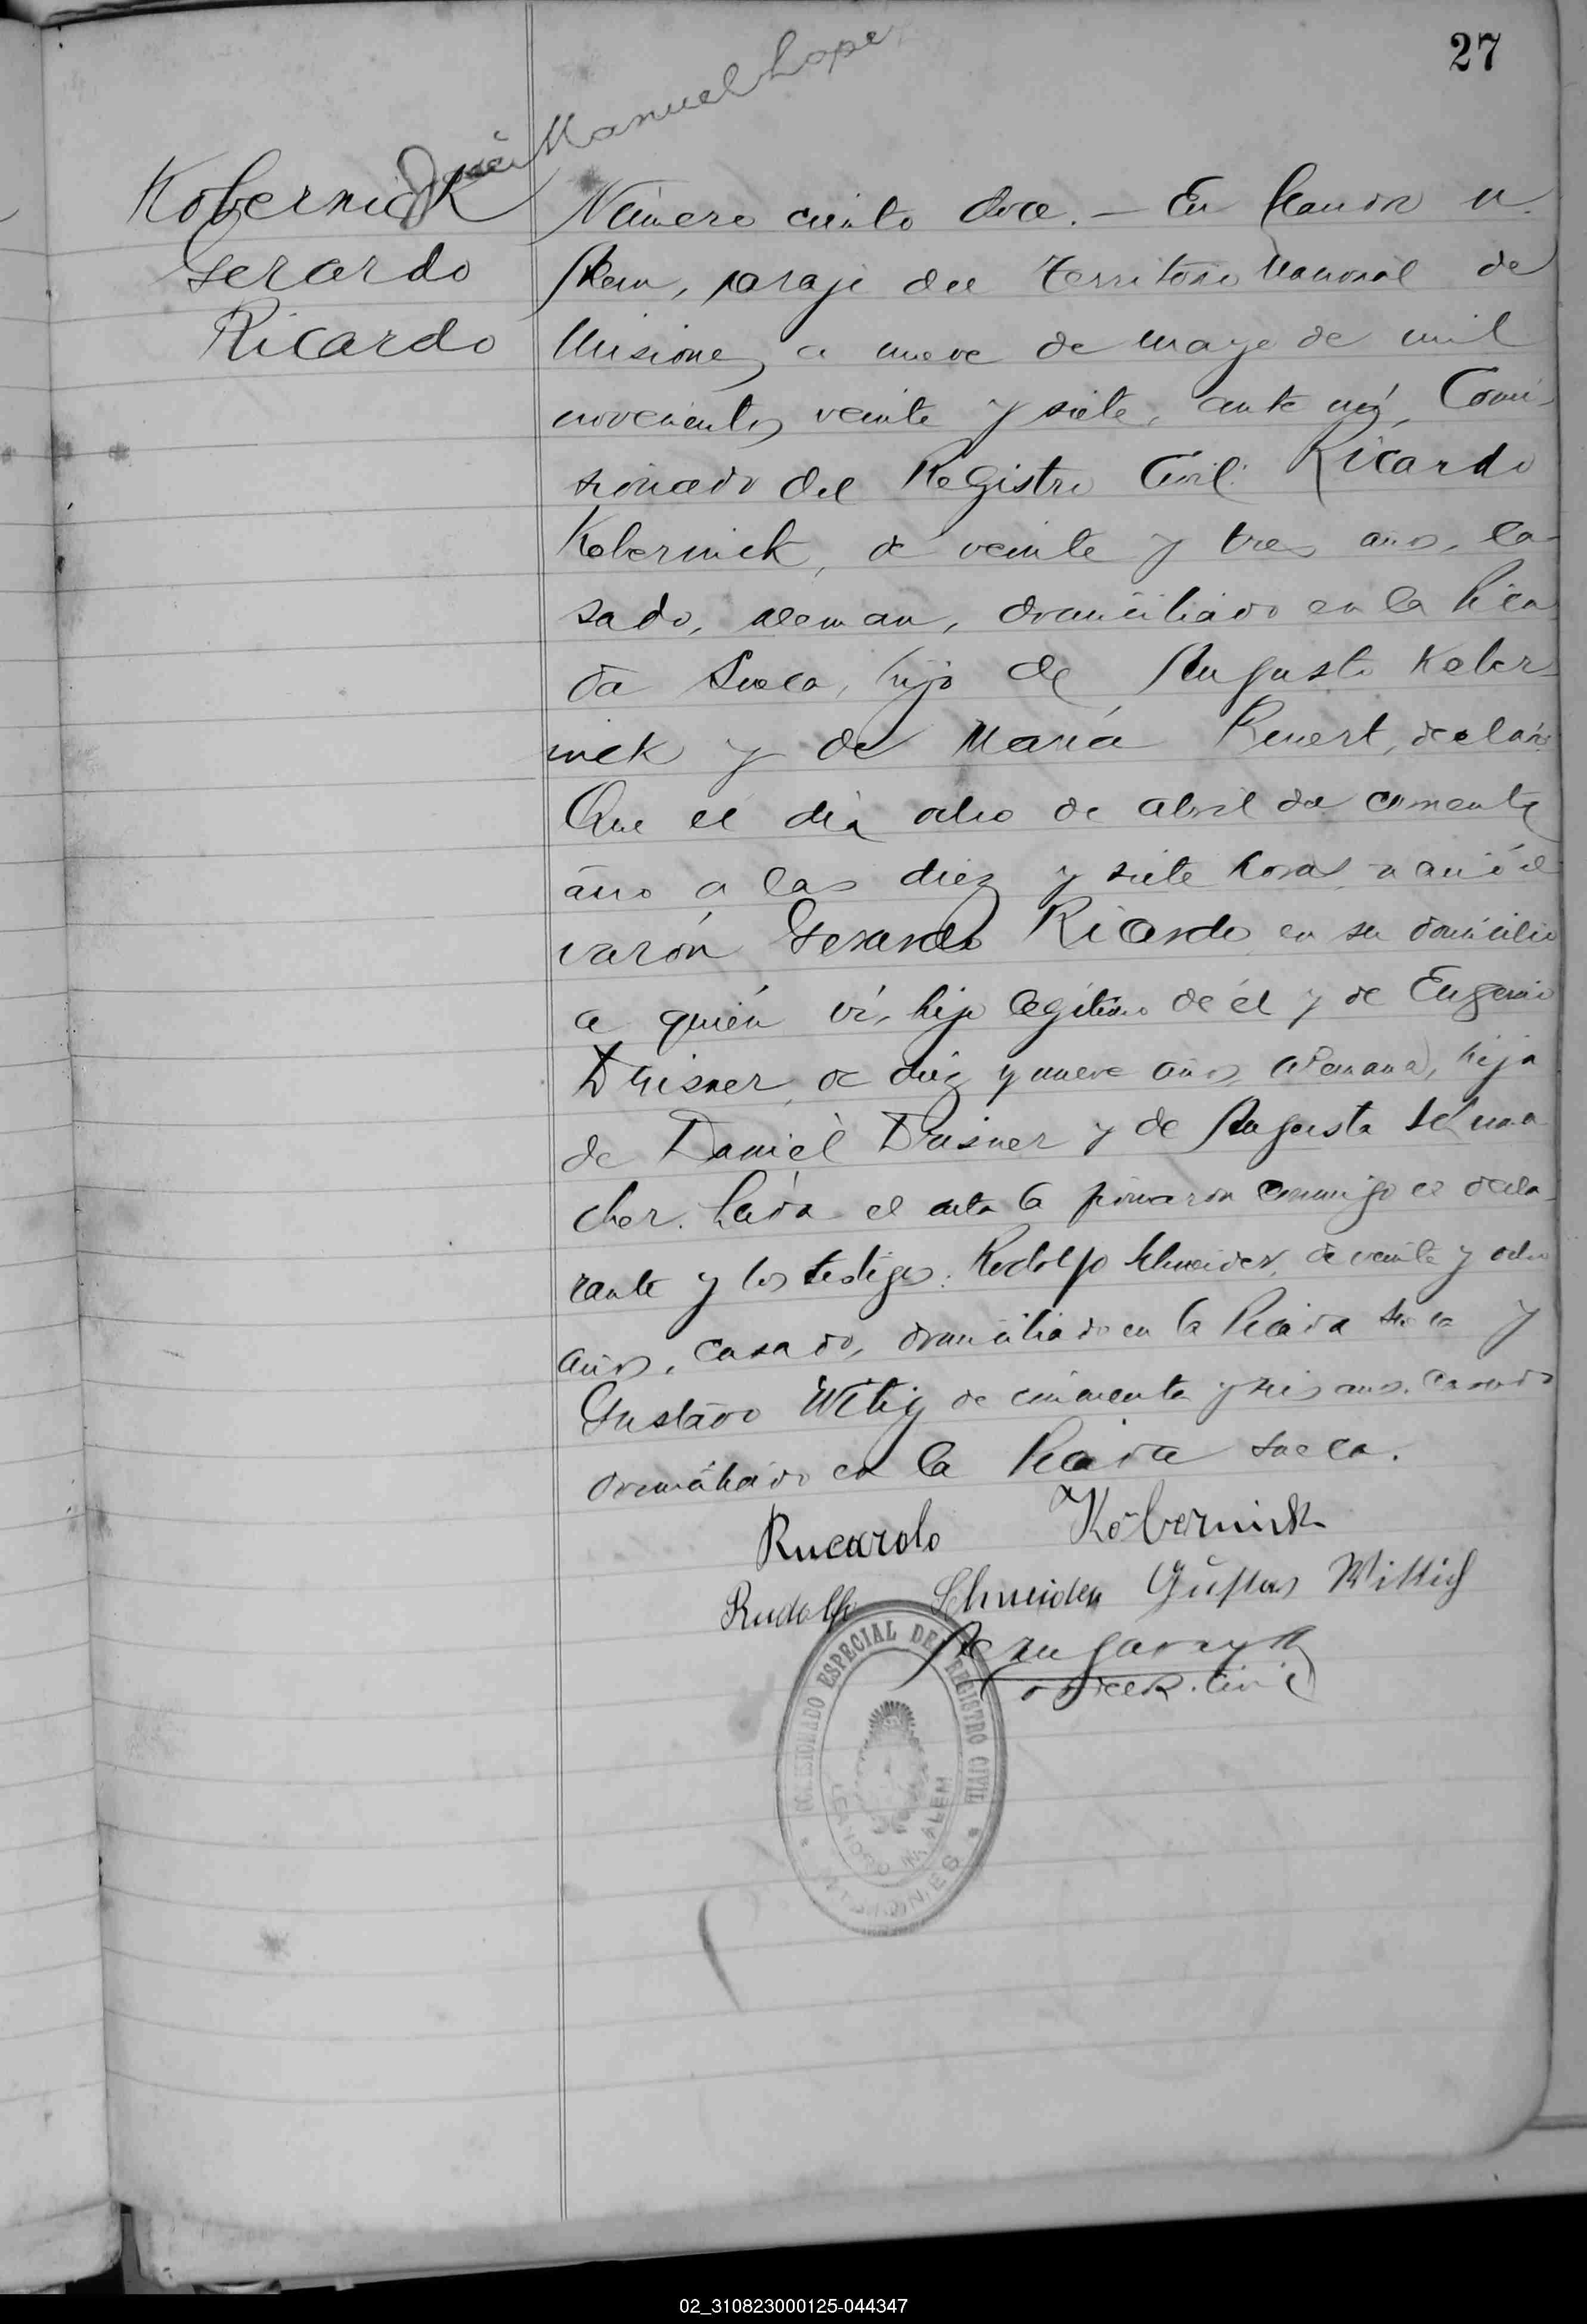 27
José Manuel Lopez
Kobernick
Gerardo
Ricardo
Número ciento doce. — En Leandro N.
Alem, paraje del Territorio Nacional de
Misiones, a nueve de mayo de mil
novecientos veinte y siete, ante mí, Comi-
sionado del Registro Civil: Ricardo
Kobernick, de veinte y tres años, ca-
sado, aleman, domiciliado en la Pica-
da Sueca, hijo de Augusto Kober-
nick y de María, declaró:
Que el día ocho de abril del corriente
año a las diez y siete horas, nació el
varón Gerardo Ricardo en su domicilio
a quién ví, hijo legítimo de él y de Eugenia
Drisner, de diez y nueve años, alemana, hija
de Daniel Drisner y de Augusta Schuma-
cher. Leída el acta la firmaron conmigo el decla-
rante y los testigos: Rodolfo Schneider, de veinte y ocho
años, casado, domiciliado en la Picada Sueca y
Gustavo Witig de cincuenta y seis años, casado
domiciliado en la Picada Sueca.
Ricardo Kobernick
Rudolfo Schneider Gustav Wittich
COMISIONADO ESPECIAL DEL REGISTRO CIVIL
LEANDRO N. ALEM
MISIONES
02_310823000125-044347